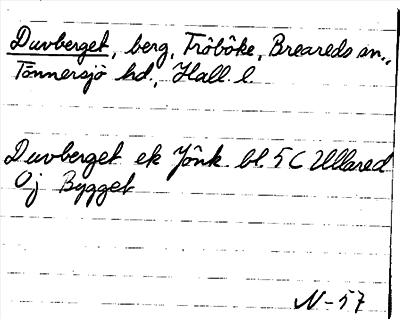 Duvberget, berg, Tröböke, Breareds sn.,
Tönnersjö hd., Hall. l.
Duvberget ek Jönk. bl. 5 C Ullared
Öj Bygget
N-57